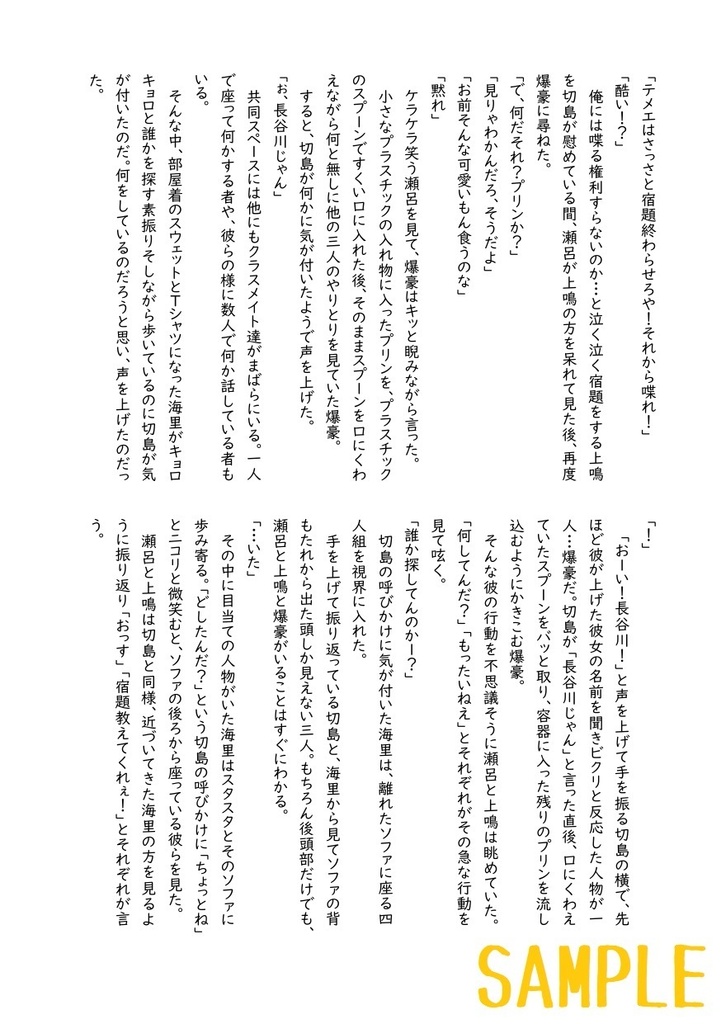 「テメエはさっさと宿題終わらせろや！それから喋れ！」
「酷い！？」
　俺には喋る権利すらないのか…と泣く泣く宿題をする上鳴
を切島が慰めている間、瀬呂が上鳴の方を呆れて見た後、再度
爆豪に尋ねた。
「で、何だそれ？プリンか？」
「見りゃわかんだろ、そうだよ」
「お前そんな可愛いもん食うのな」
「黙れ」
　ケラケラ笑う瀬呂を見て、爆豪はキッと睨みながら言った。
　小さなプラスチックの入れ物に入ったプリンを、プラスチック
のスプーンですくい口に入れた後、そのままスプーンを口にくわ
えながら何と無しに他の三人のやりとりを見ていた爆豪。
　すると、切島が何かに気が付いたようで声を上げた。
「お、長谷川じゃん」
　共同スペースには他にもクラスメイト達がまばらにいる。一人
で座って何かする者や、彼らの様に数人で何か話している者も
いる。
　そんな中、部屋着のスウェットとTシャツになった海里がキョロ
キョロと誰かを探す素振りそしながら歩いているのに切島が気
が付いたのだ。何をしているのだろうと思い、声を上げたのだっ
た。
「！」
　「おーい！長谷川！」と声を上げて手を振る切島の横で、先
ほど彼が上げた彼女の名前を聞きビクリと反応した人物が一
人…爆豪だ。切島が「長谷川じゃん」と言った直後、口にくわえ
ていたスプーンをバッと取り、容器に入った残りのプリンを流し
込むようにかきこむ爆豪。
　そんな彼の行動を不思議そうに瀬呂と上鳴は眺めていた。
「何してんだ？」「もったいねえ」とそれぞれがその急な行動を
見て呟く。
「誰か探してんのかー？」
　切島の呼びかけに気が付いた海里は、離れたソファに座る四
人組を視界に入れた。
　手を上げて振り返っている切島と、海里から見てソファの背
もたれから出た頭しか見えない三人。もちろん後頭部だけでも、
瀬呂と上鳴と爆豪がいることはすぐにわかる。
「…いた」
　その中に目当ての人物がいた海里はスタスタとそのソファに
歩み寄る。「どしたんだ？」という切島の呼びかけに「ちょっとね」
とニコリと微笑むと、ソファの後ろから座っている彼らを見た。
　瀬呂と上鳴は切島と同様、近づいてきた海里の方を見るよ
うに振り返り「おっす」「宿題教えてくれぇ！」とそれぞれが言
う。
SAMPLE